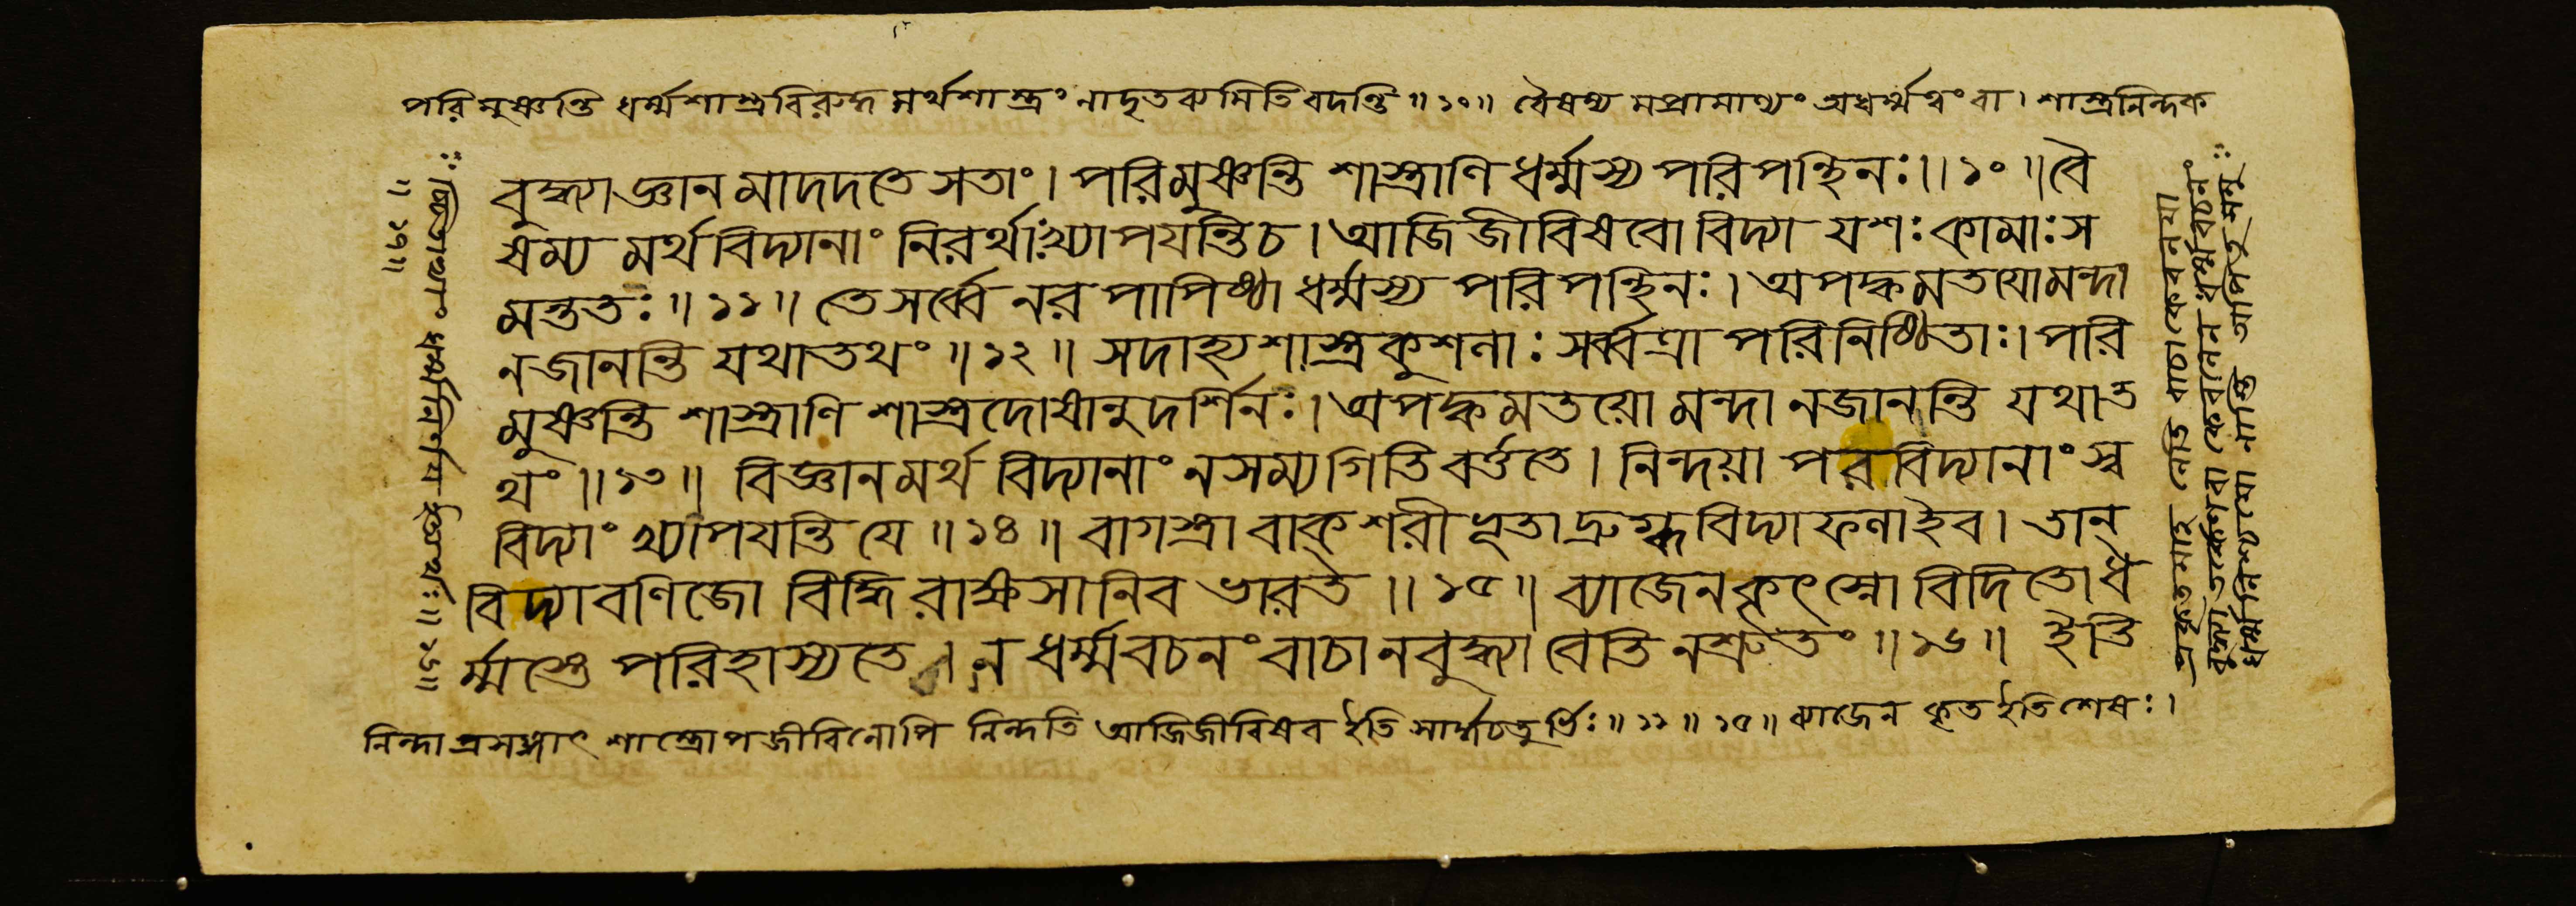 পরিমুষ্ণন্তি ধর্ম্মশাস্ত্রবিরুদ্ধমর্থশাস্ত্রং নাদৃতব্যমিতি বদন্তি ॥ ১০ ॥ বৈষম্যমপ্রামাণ্যং অধর্ম্মত্বং বা । শাস্ত্রনিন্দক
বুদ্ধ্যা জ্ঞানমাদদতে সতাং । পরিমুষ্ণন্তি শাস্ত্রাণি ধর্ম্মস্য পরিপন্থিনঃ ॥ ১০ ॥ বৈ
ষম্যমর্থবিদ্যানাং নিরর্থাঃ খ্যাপযন্তি চ । আজিজীবিষবো বিদ্যা যশঃকামাঃ স
মন্ততঃ ॥ ১১ ॥ তে সর্ব্বে নরপাপিষ্ঠা ধর্ম্মস্য পরিপন্থিনঃ । অপক্বমতযো মন্দা
ন জানন্তি যথাতথং ॥ ১২ ॥ সদাহ্যশাস্ত্রকুশলাঃ সর্ব্বত্রাপরিনিষ্ঠিতাঃ । পরি
মুষ্ণন্তি শাস্ত্রাণি শাস্ত্রদোষানুদর্শিনঃ । অপক্বমতয়ো মন্দা ন জানন্তি যথাত
থং ॥ ১৩ ॥ বিজ্ঞানমর্থ বিদ্যানাং ন সম্যগিতি বর্ততে । নিন্দয়া পরবিদ্যানাং স্ব
বিদ্যাং খ্যাপযন্তি যে ॥ ১৪ ॥ বাগস্ত্রা বাক্শরীভূতা দুগ্ধবিদ্যাফলা ইব । তান্
বিদ্যাবণিজো বিদ্ধি রাক্ষসানিব ভারত ॥ ১৫ ॥ ব্যাজেন কৃৎস্নো বিদিতো ধ
র্ম্মস্তে পরিহাস্যতে । ন ধর্ম্মবচনং বাচা ন বুদ্ধ্যা বেতি ন শ্রুতং ॥ ১৬ ॥ ইতি
নিন্দাপ্রসঙ্গাৎ শাস্ত্রোপজীবিনোপি নিন্দতি আজিজীবিষব ইতি সার্দ্ধচতুর্ভিঃ ॥ ১১ ॥ ১৫ ॥ ব্যাজেন কৃত ইতি শেষঃ ।